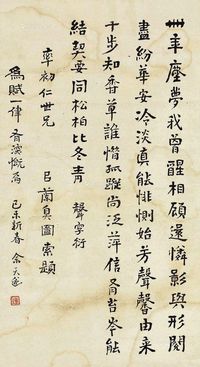 卅年塵夢我曾醒相顧還憐影與形閱
盡紛華安冷淡真能悱惻始芳聲馨由来
十步知香草誰惜孤蹤尚泛萍信有苔岑能
結契要同松柏比冬青 聲字衍
率初仁世兄 㠯蘭真圖索題
為賦一律有深慨焉 己未新春 余天遂